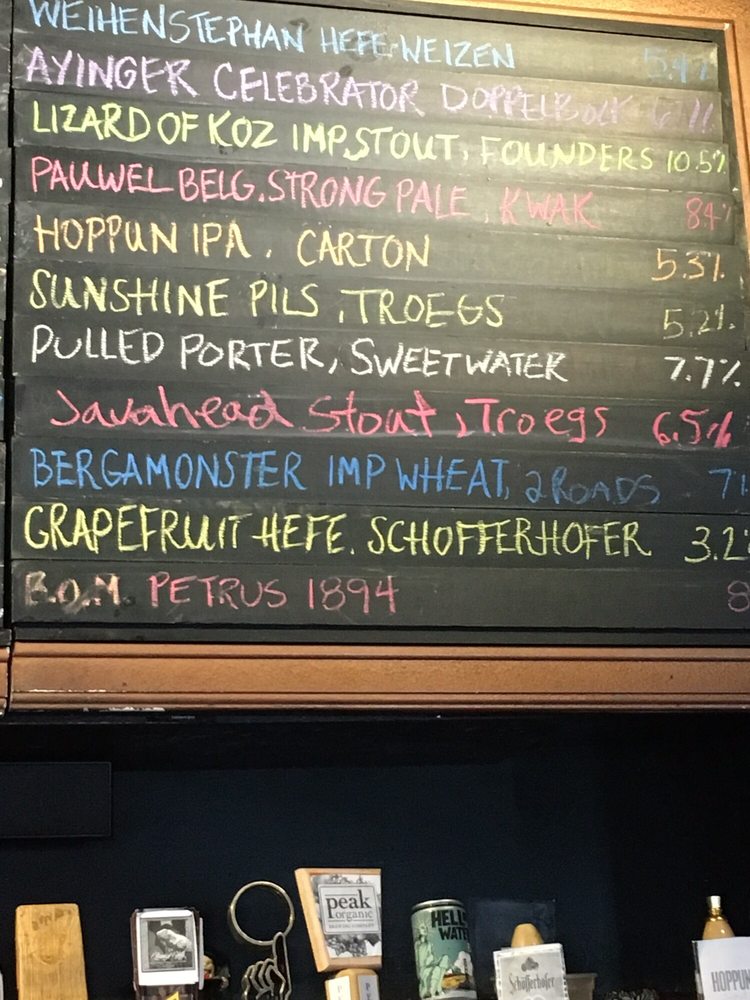 WEIHENSTEPHAN HEFE-WEIZEN 5.4%
AYINGER CELEBRATOR DOPPELBOCK
LIZARD OF KOZ IMP.STOUT, FOUNDERS 10.5%
PAUWEL BELG.STRONG PALE, KWAK 84%
HOPPUN IPA. CARTON 5.3%
SUNSHINE PILS, TROEGS 5.2%
PULLED PORTER, SWEETWATER 7.7%
Javahead Stout, Troegs 6.5%
BERGAMONSTER IMP WHEAT, 2ROADS
GRAPEFRUIT HEFE. SCHOFFERHOFER 3.2
B.O.M. PETRUS 1894 8
peak
organic
BREWING COMPANY
HELL
WATE
Schöfferhofer
HOPPUN